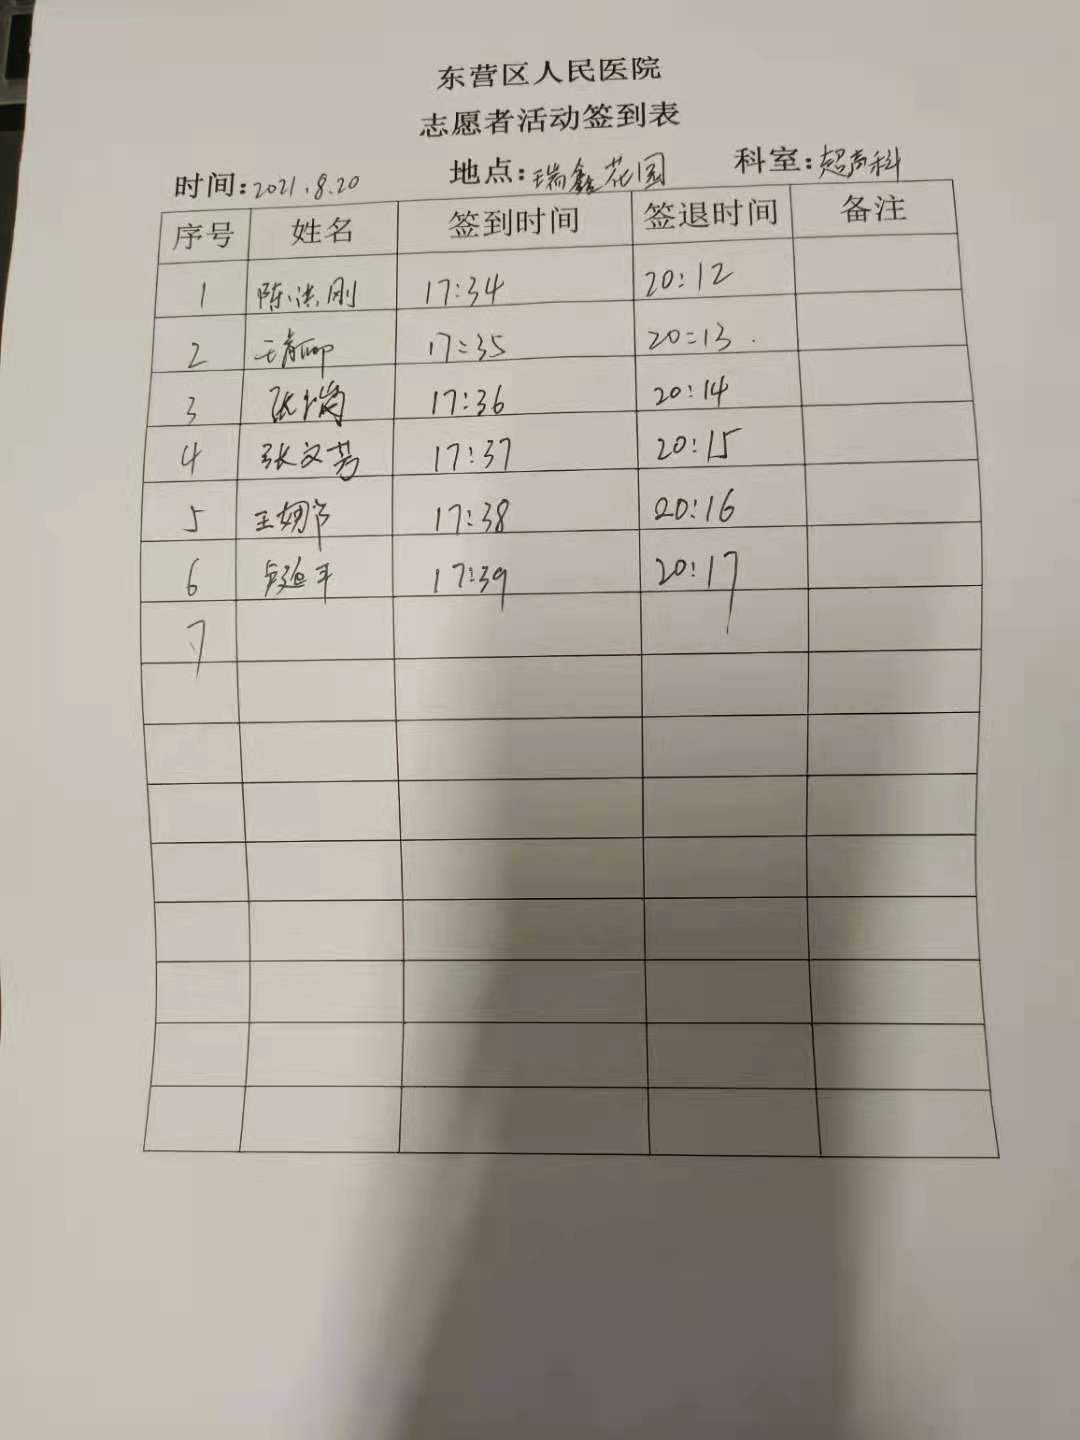 东营区人民医院
志愿者活动签到表
时间:2021.8.20 地点:瑞鑫花园 科室:超声科
序号 姓名 签到时间 签退时间 备注
1 陈洪刚 17:34 20:12
2 王 17:35 20:13
3 张 17:36 20:14
4 张文芳 17:37 20:15
5 王 17:38 20:16
6 17:39 20:17
7